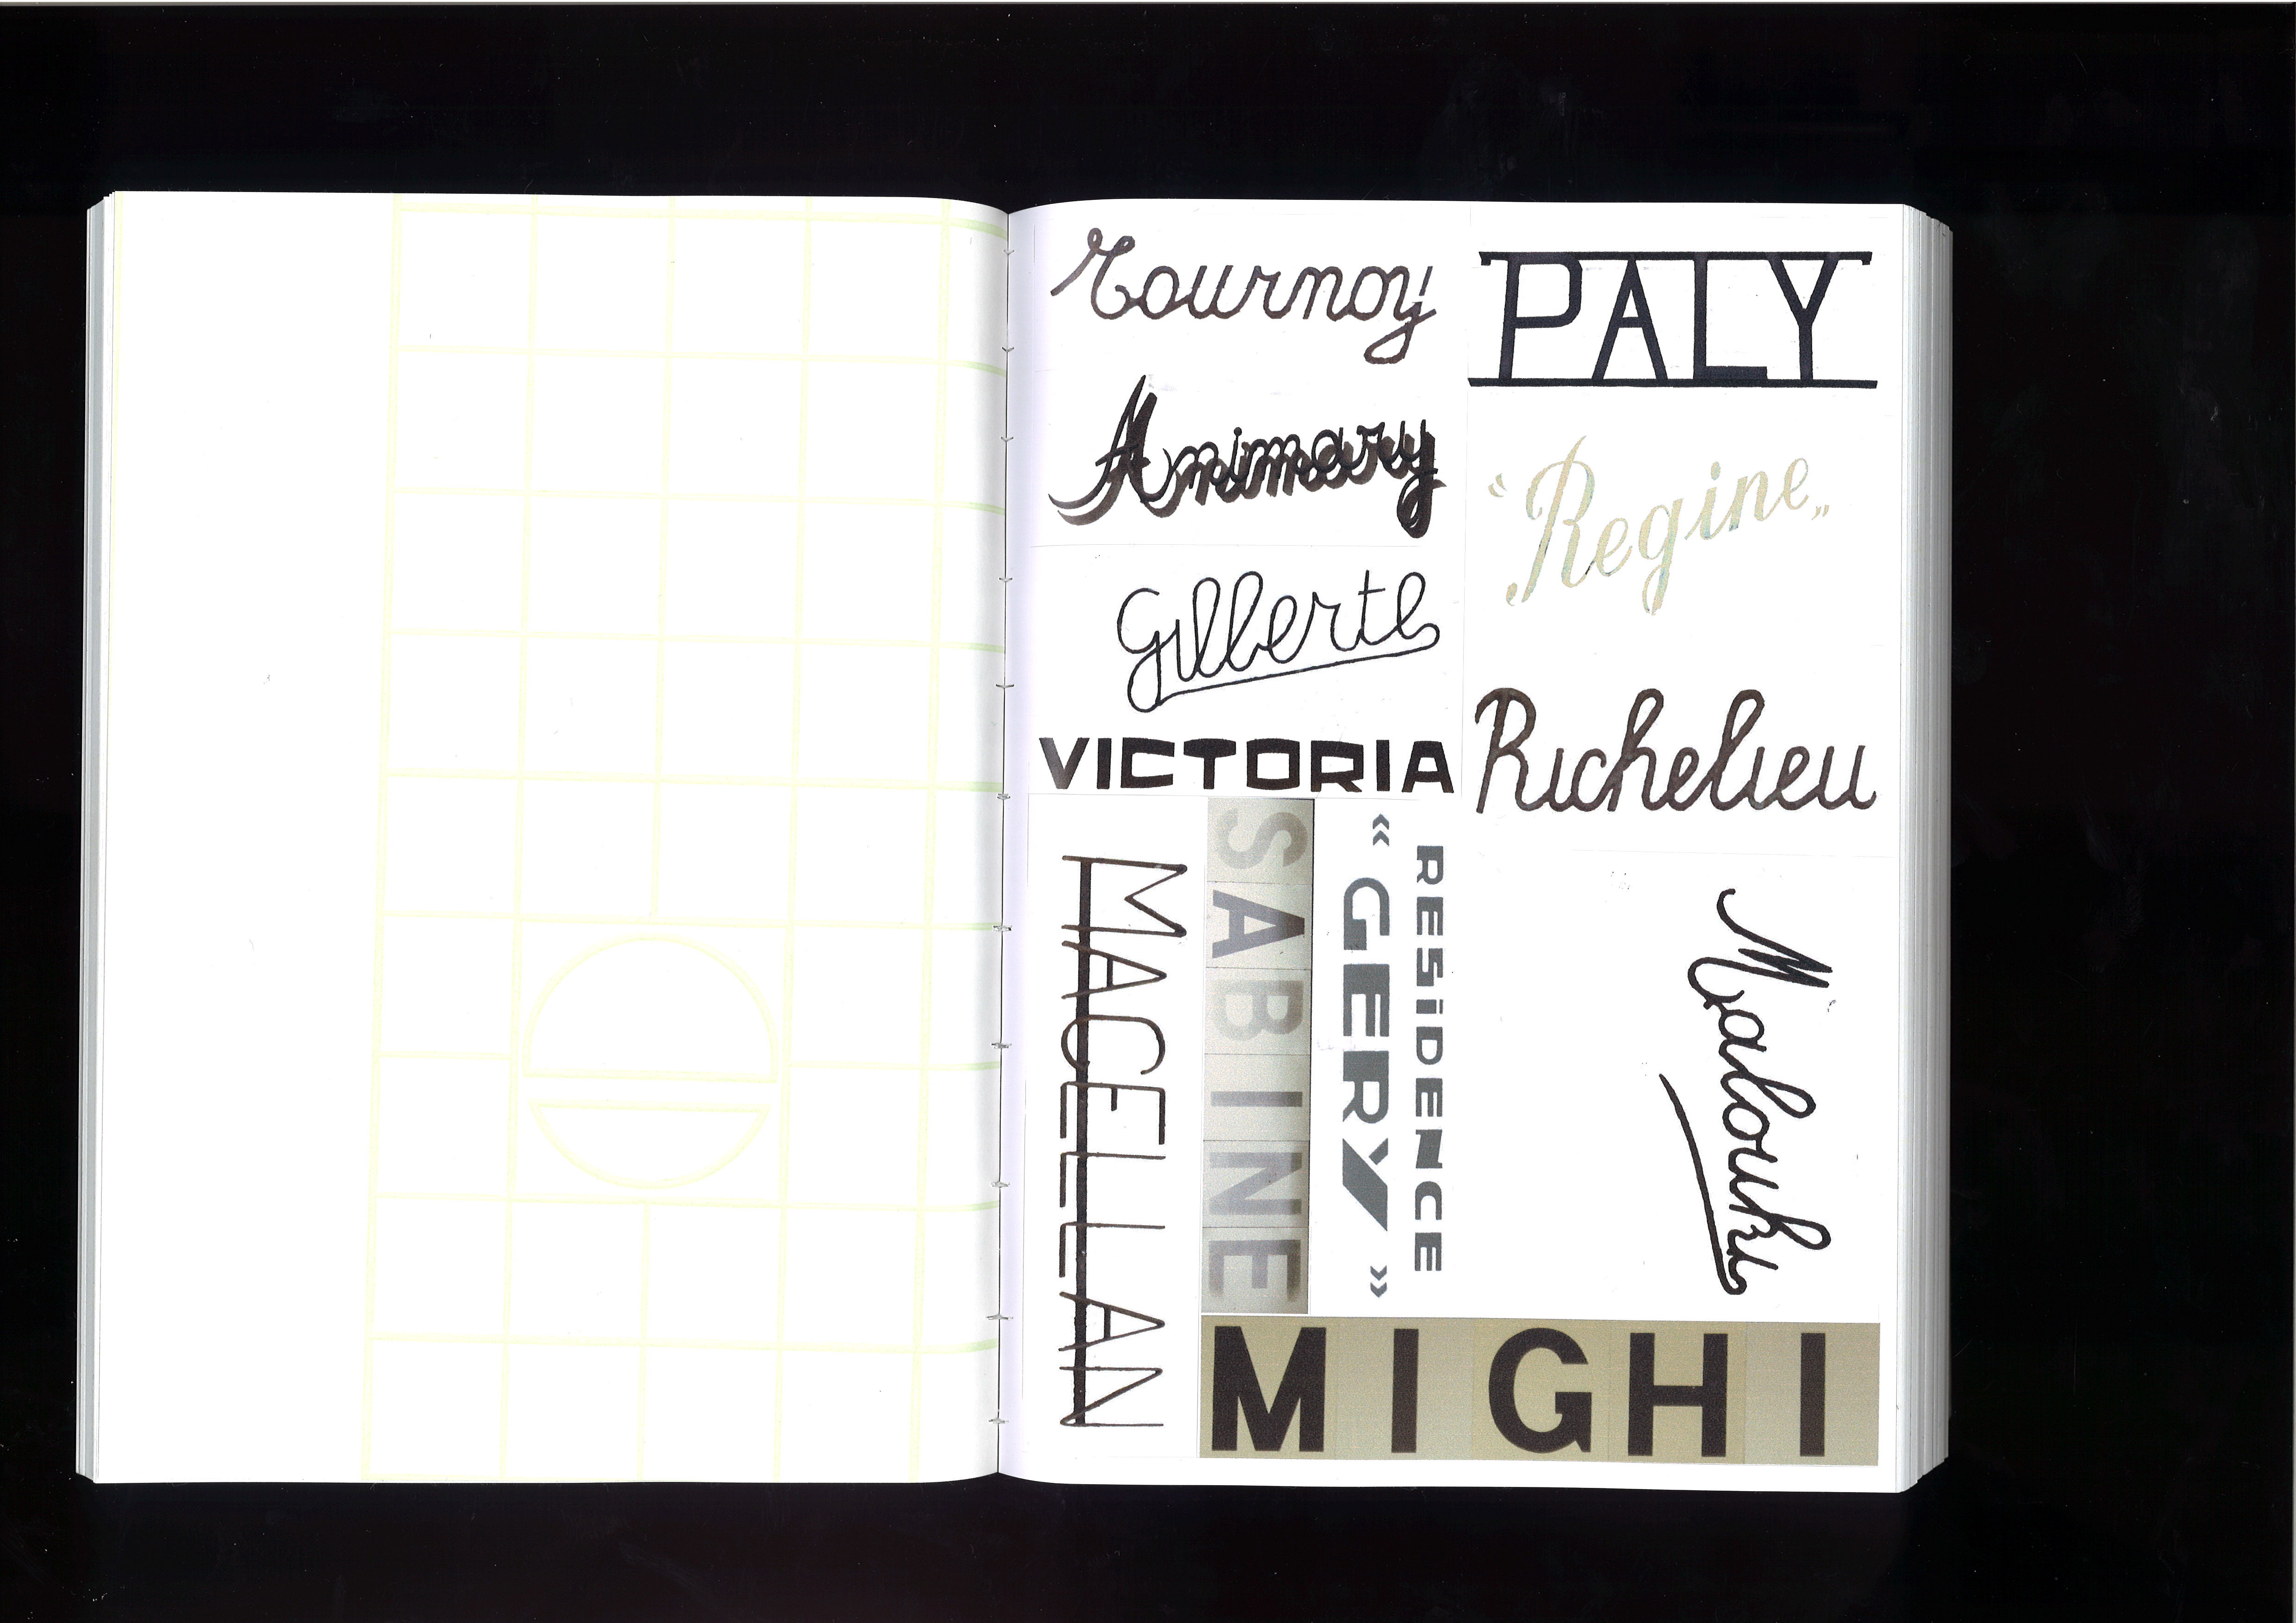 Tournoy
PALY
Annimary
"Regine„
Gilberte
Richelieu
VICTORIA
MACELLAN
SABINE
RESiDENCE
« GERY »
Malouki
MIGHI